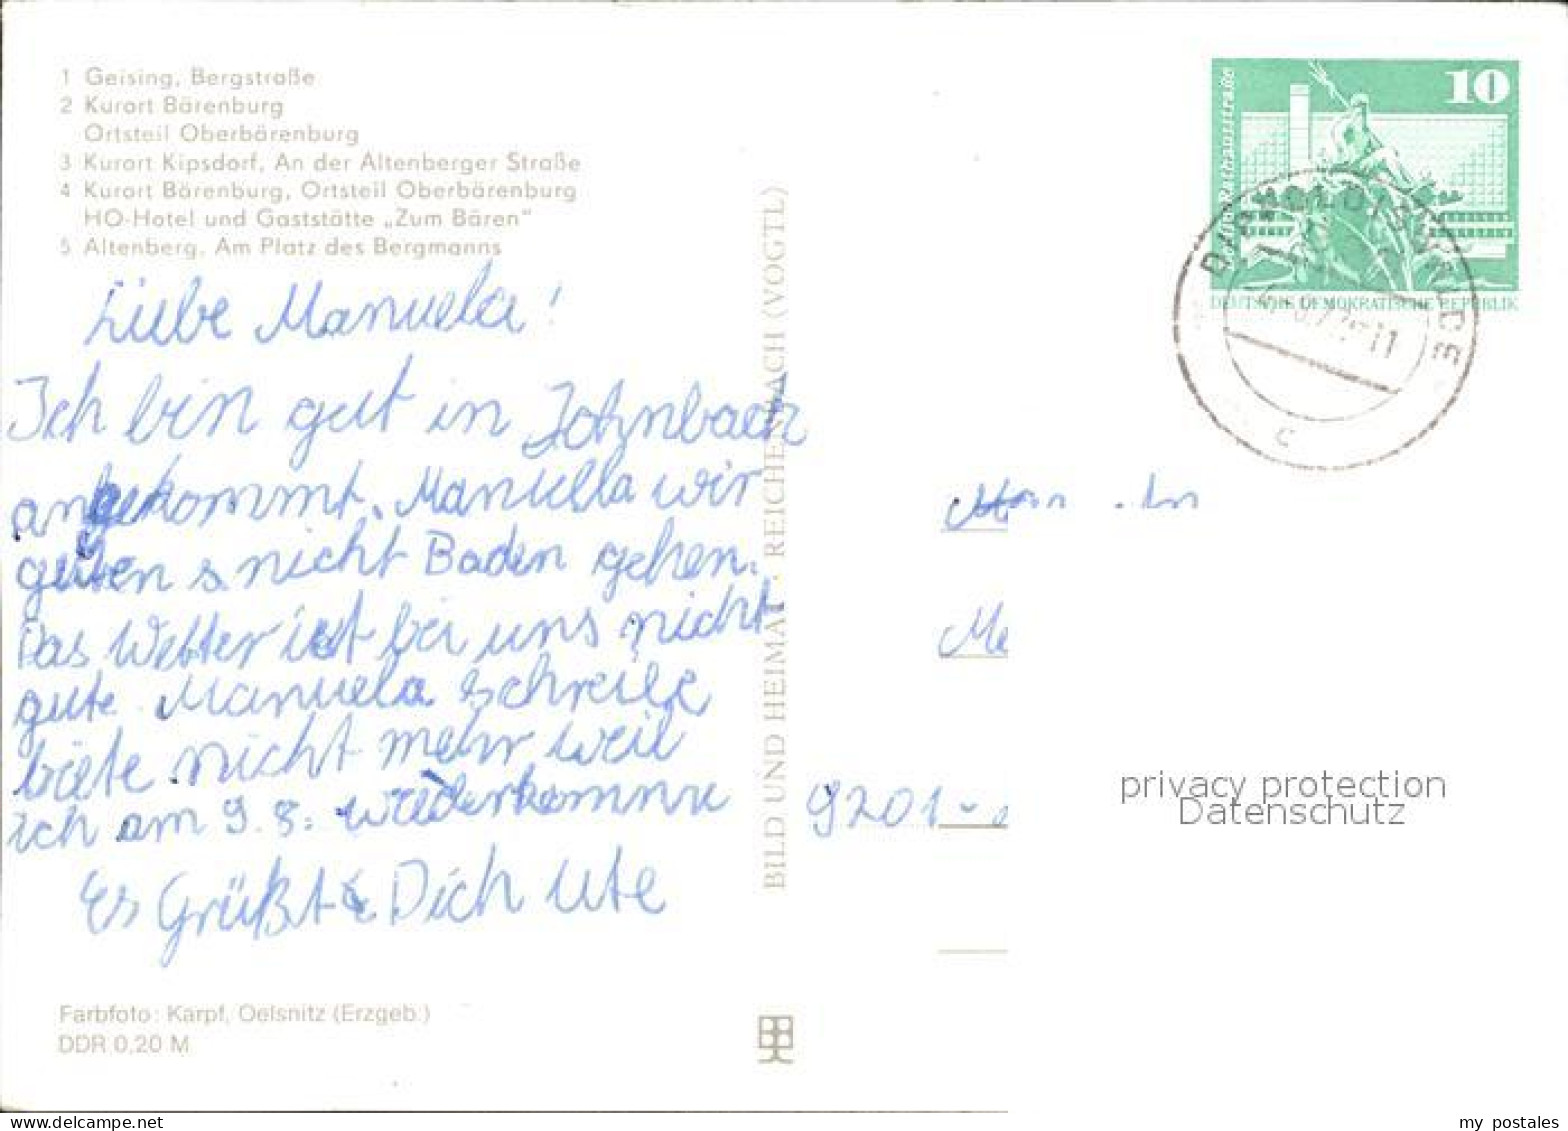 1 Geising, Bergstraße
2 Kurort Bärenburg
Ortsteil Oberbärenburg
3 Kurort Kipsdorf, An der Altenberger Straße
4 Kurort Bärenburg, Ortsteil Oberbärenburg
HO-Hotel und Gaststätte „Zum Bären“
5 Altenberg, Am Platz des Bergmanns
Liebe Manuela!
Ich bin gut in Johnbach
angekommt. Manuella wir
nicht Baden gehen.
Das Wetter ist bei uns nicht
gute Manuela schreibe
biete nicht mehr weil
ich am 9.8. wiederkomme
Es Grüßt Dich Ute
Farbfoto: Karpf, Oelsnitz (Erzgeb.)
DDR 0,20 M
BILD UND HEIMAT REICHENBACH (VOGTL)
10
DEUTSCHE DEMOKRATISCHE REPUBLIK
DIPPOLDISWALDE
c
9201 -
privacy protection
Datenschutz
my postales